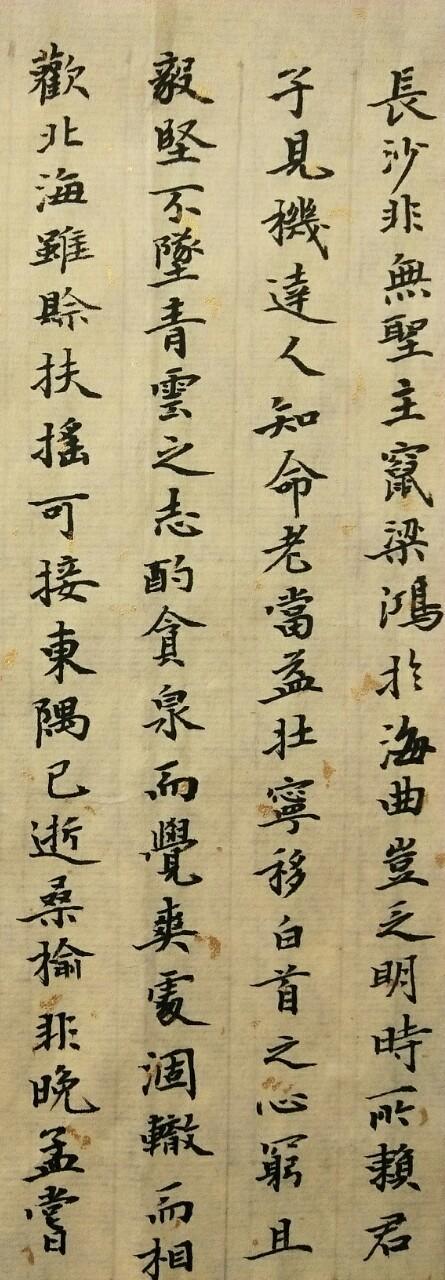 長沙非無聖主竄梁鴻於海曲豈乏明時所賴君
子見機達人知命老當益壯寧移白首之心窮且
毅堅不墜青雲之志酌貪泉而覺爽處涸轍而相
歡北海雖賒扶搖可接東隅已逝桑榆非晚孟嘗